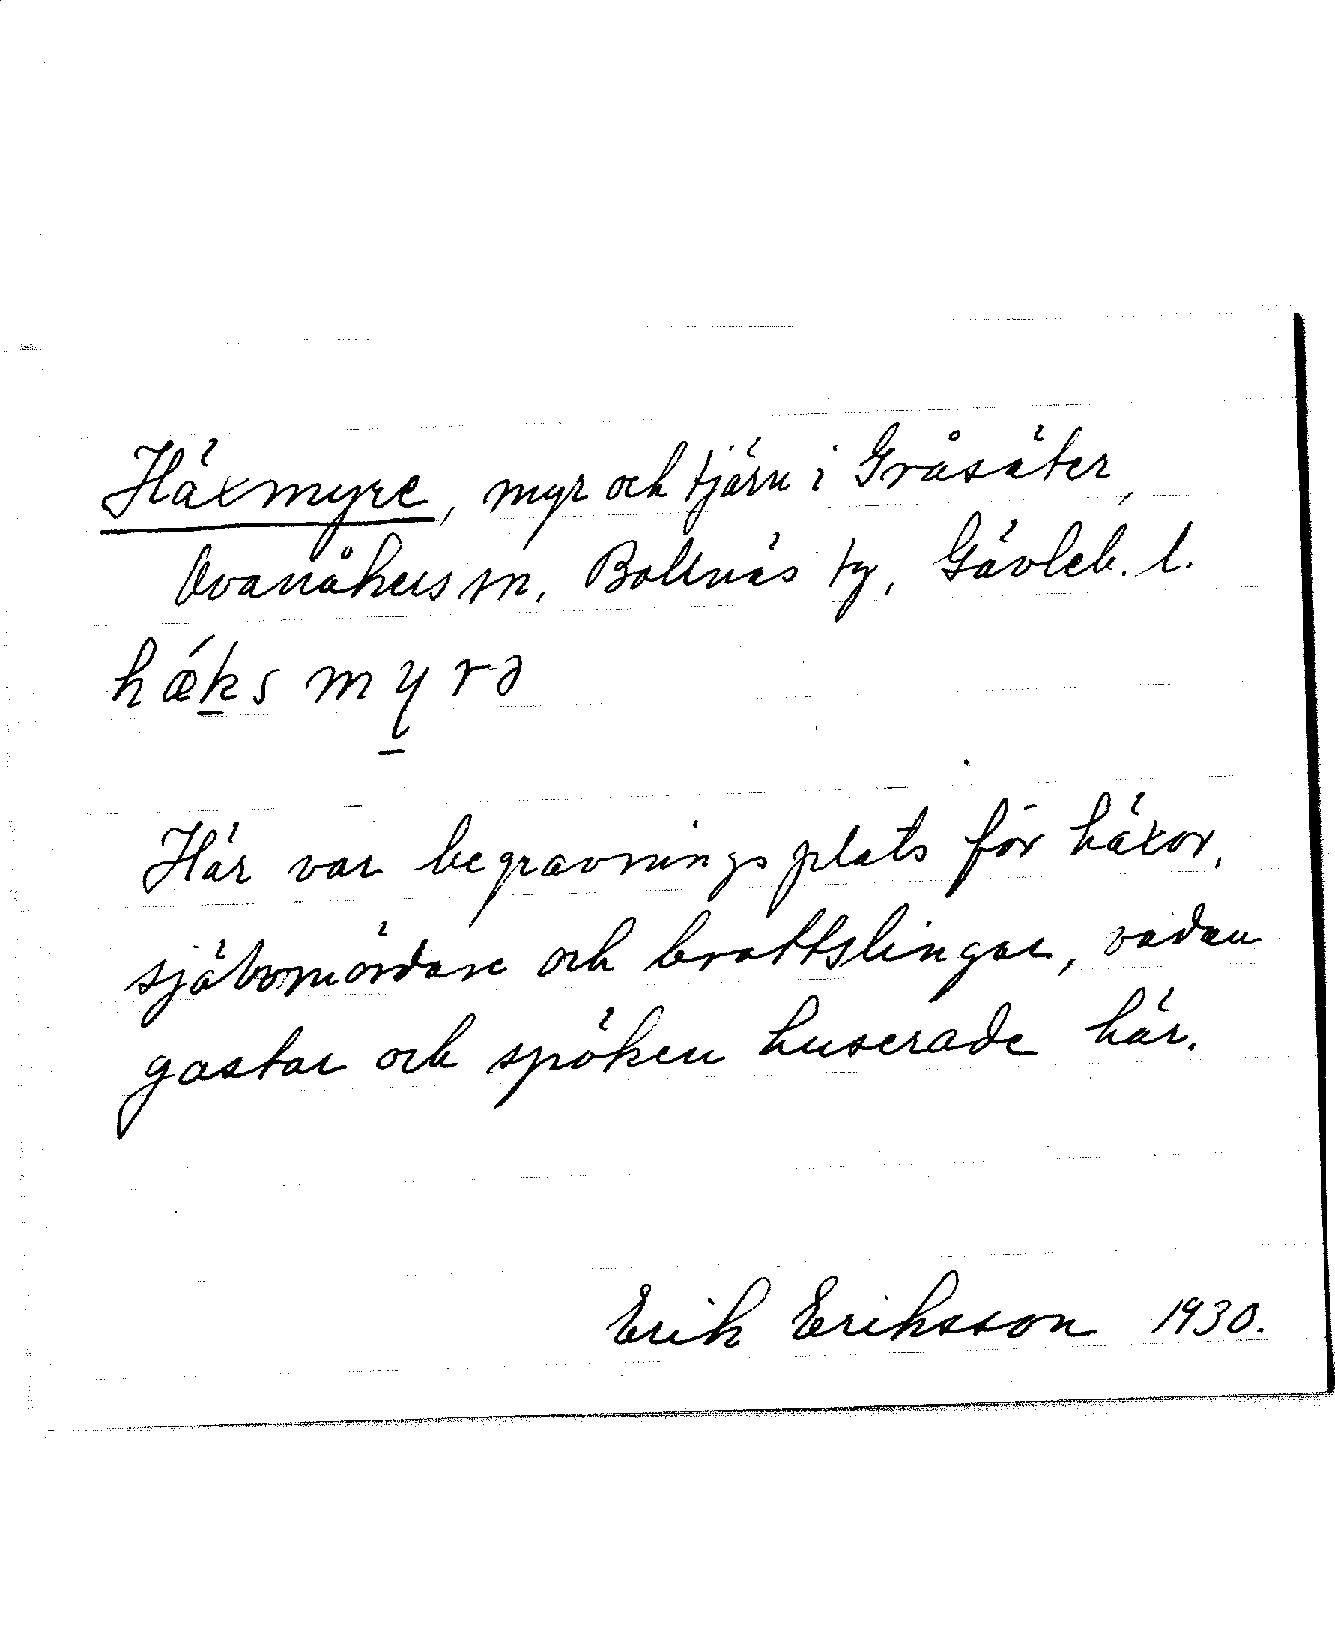 Häxmyre, myr och tjärn i Gråsäter,
Ovanåkers sn, Bollnäs tg, Gävleb. l.
hǽks myrə
Här var begravningsplats för häxor,
självmördare och brottslingar, vadan
gastar och spöken huserade här.
Erik Eriksson 1930.